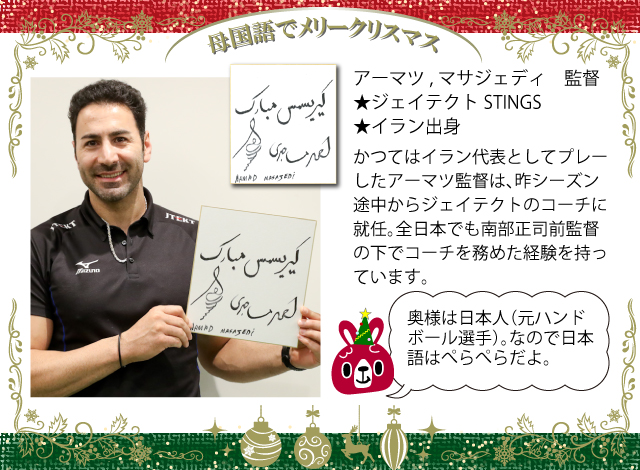 母国語でメリークリスマス
アーマツ , マサジェディ　監督
★ジェイテクト STINGS
★イラン出身
かつてはイラン代表としてプレー
したアーマツ監督は、昨シーズン
途中からジェイテクトのコーチに
就任。全日本でも南部正司前監督
の下でコーチを務めた経験を持っ
ています。
奥様は日本人（元ハンド
ボール選手）。なので日本
語はぺらぺらだよ。
کریسمس مبارک
احمد مساجدی
AHMAD MASAJEDI
JTEKT
JTEKT
MIZUNO
کریسمس مبارک
احمد مساجدی
AHMAD MASAJEDI